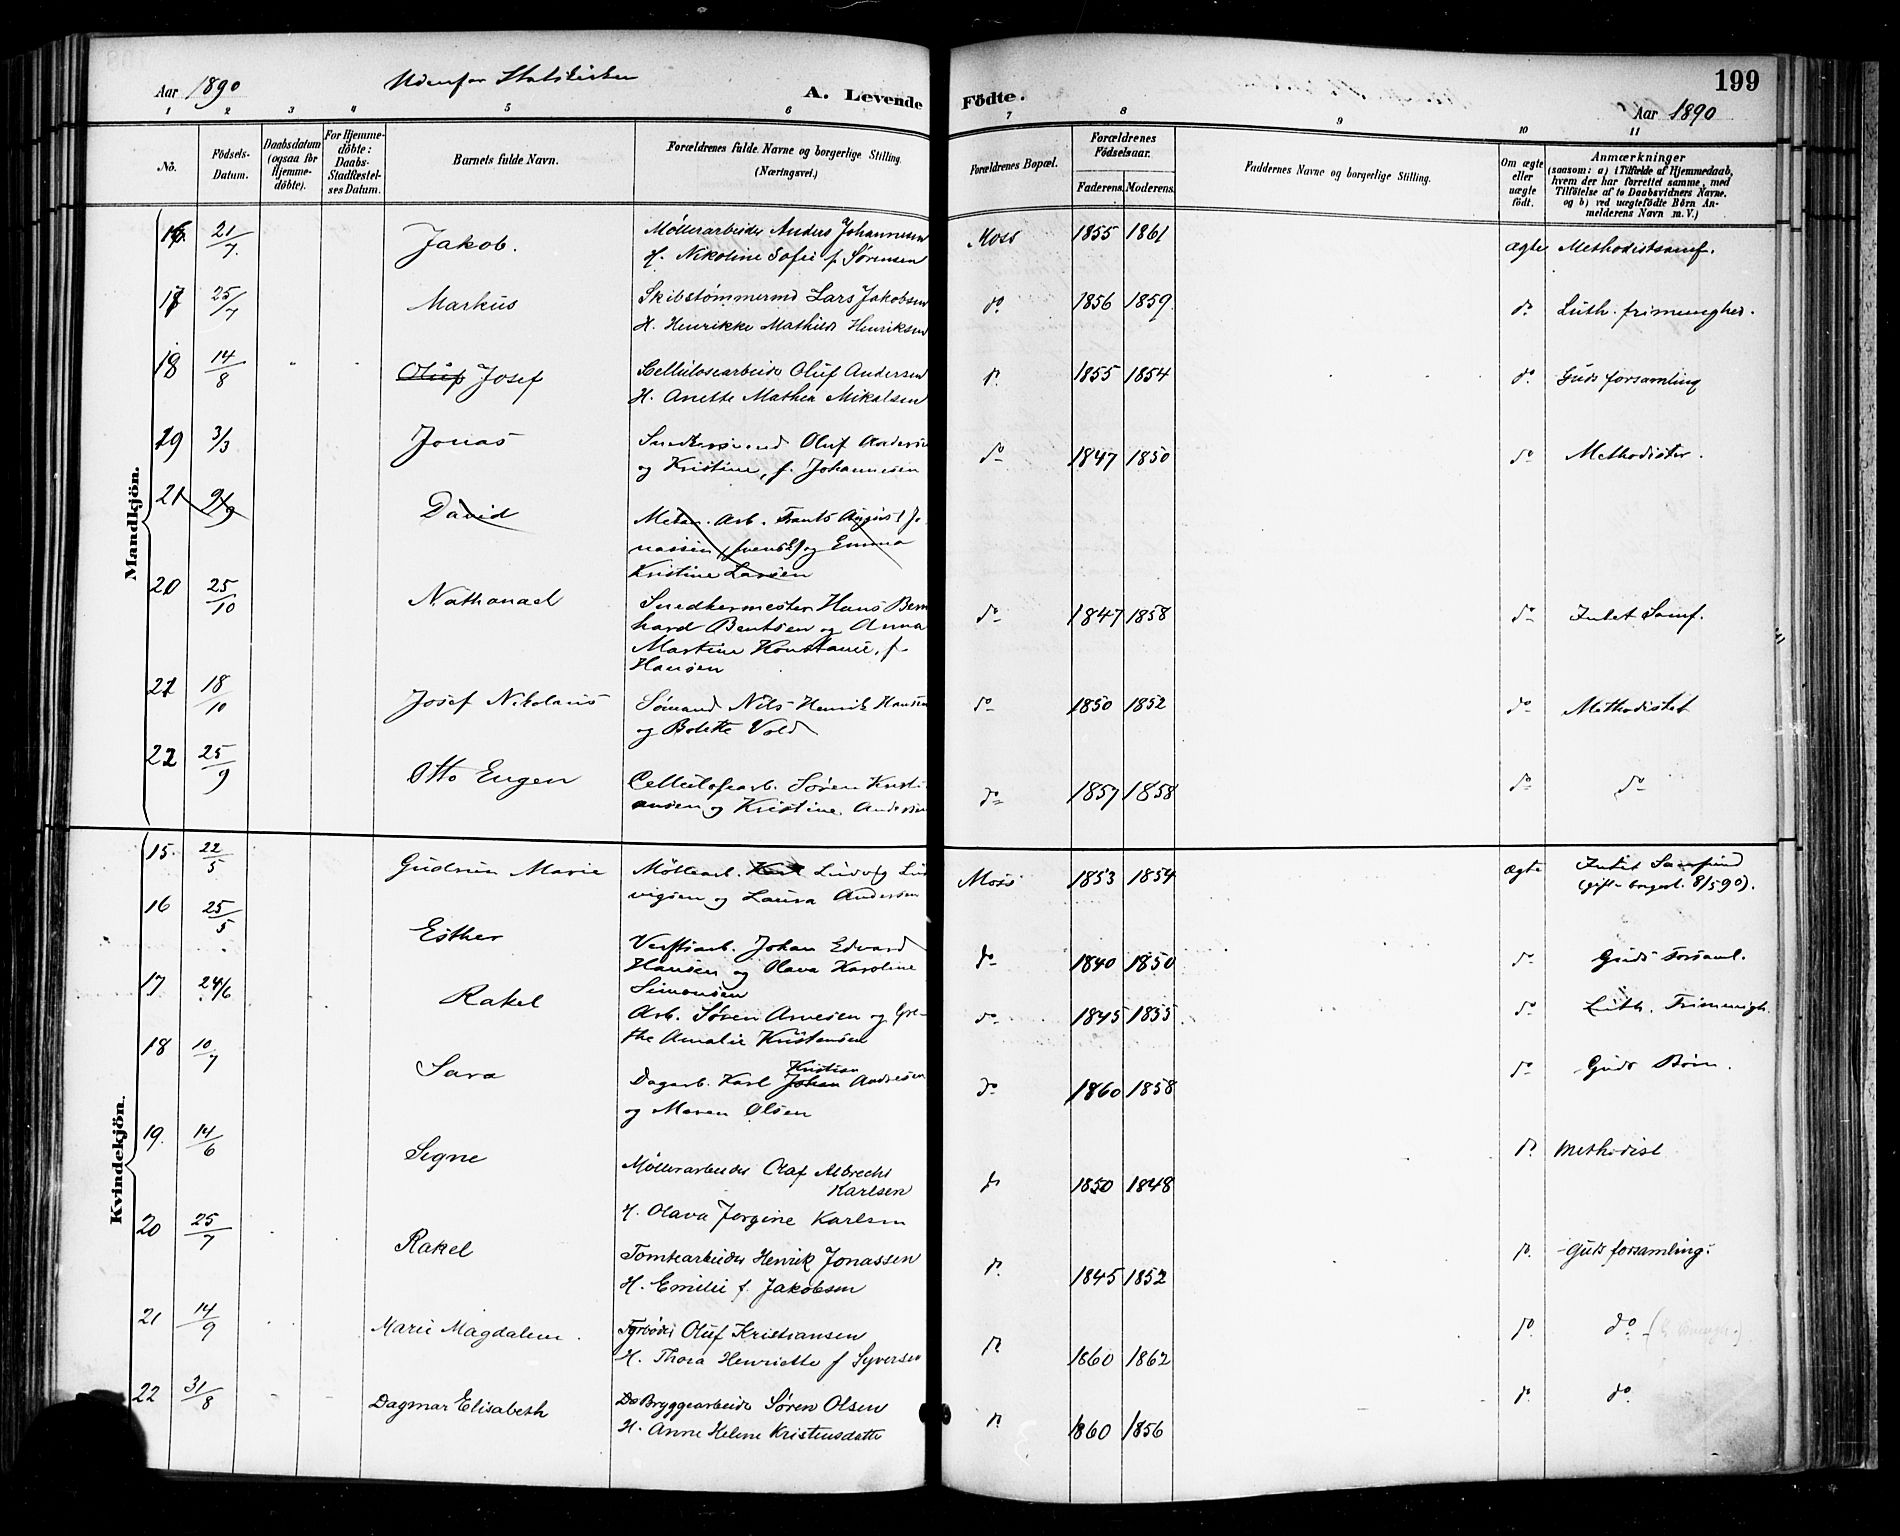 199
Aar 1890 Udenfor Statskirken A. Levende Födte. Aar 1890
1 2 3 4 5 6 7 8 9 10 11
No. Födsels-Datum. Daabsdatum (ogsaa for Hjemme-döbte). For Hjemme-döbte: Daabs-Stadfæstel-ses Datum. Barnets fulde Navn. Forældrenes fulde Navne og borgerlige Stilling. (Næringsvei.) Forældrenes Bopæl. Forældrenes Födselsaar. Faderens. Moderens. Faddernes Navne og borgerlige Stilling. Om ægte eller uægte födt. Anmærkninger (saasom: a) i Tilfælde af Hjemmedaab, hvem der har forrettet samme, med Tilföielse af to Daabsvidners Navne, og b) ved uægtefödte Börn An-melderens Navn m. V.)
Mandkjön.
16 21/7 Jakob. Møllerarbeider Anders Johannesen Moss 1855 1861 ægte Methodistsamf.
H. Nikoline Sofie f. Sørensen
17 25/7 Markus Skibstømmermd Lars Jakobsen do 1856 1859 do Luth. frimenighed.
H. Henrikke Mathilde Henriksen
18 14/8 Oluf Josef Cellulosearbeider Oluf Andersen do 1855 1854 do Guds forsamling
H. Anette Mathea Mikalsen
19 3/3 Jonas Snedkersvend Oluf Andersen do 1847 1850 do Methodister.
og Kristine, f. Johannesen
21 9/9 David Mekan. Arb. Frants August Jo-
nassen (svensk) og Emma
Kristine Larsen
20 25/10 Nathanael Snedkermester Hans Bern do 1847 1858 do Intet Samf.
hard Bentsen og Anna
Martine Konstance, f.
Hansen
21 18/10 Josef Nikolaus Sømand Nils Henrik Hansen do 1850 1852 do Methodistet
og Bolette Vold
22 25/9 Otto Eugen Cellulosearb. Søren Kristi do 1857 1858 do do
ansen og Kristine Andersen
Kvindekjön.
15. 22/5 Gudrun Marie Møllearb. Ludvig Lud Moss 1853 1854 ægte Intet Samfund
vigsen og Laura Andersen (gift borgerl. 8/5 90).
16 25/5 Esther Verftsarb. Johan Edvard do 1840 1850 do Guds Forsaml.
Hansen og Olava Karoline
Simonsen
17 24/6 Rakel Arb. Søren Arnesen og Gre- do 1845 1855 do Luth. Frimenigh.
the Amalie Kristensen
18 10/7 Sara Dagarb. Karl Johan Kristian Andresen do 1860 1858 do Guds Børn.
og Maren Olsen
19. 14/6 Signe Møllerarbeider Olaf Albrecht do 1850 1848 do Methodist
Karlsen
H. Olava Jørgine Karlsen
20 25/7 Rakel Tomtearbeider Henrik Jonassen do 1845 1852 do Guds forsamling.
H. Emilie f. Jakobsen
21 14/9 Marie Magdalene. Fyrbøder Oluf Kristiansen do 1860 1862 do do
H. Thora Henriette f Syversen
22 31/8 Dagmar Elisabeth Do Bryggearbeider Søren Olsen do 1860 1856 do do
H. Anne Helene Kristensdatter